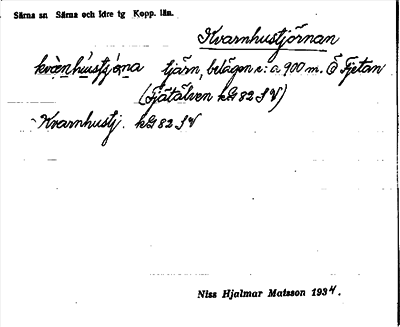 Särna sn Särna och Idre tg Kopp. län.
Kvarnhustjörnan
tjärn, belägen c:a 900 m. Ö Fjetan
(Fjätälven kG 82 SV)
Kvarnhustj. kG 82 SV
Niss Hjalmar Matsson 1934.